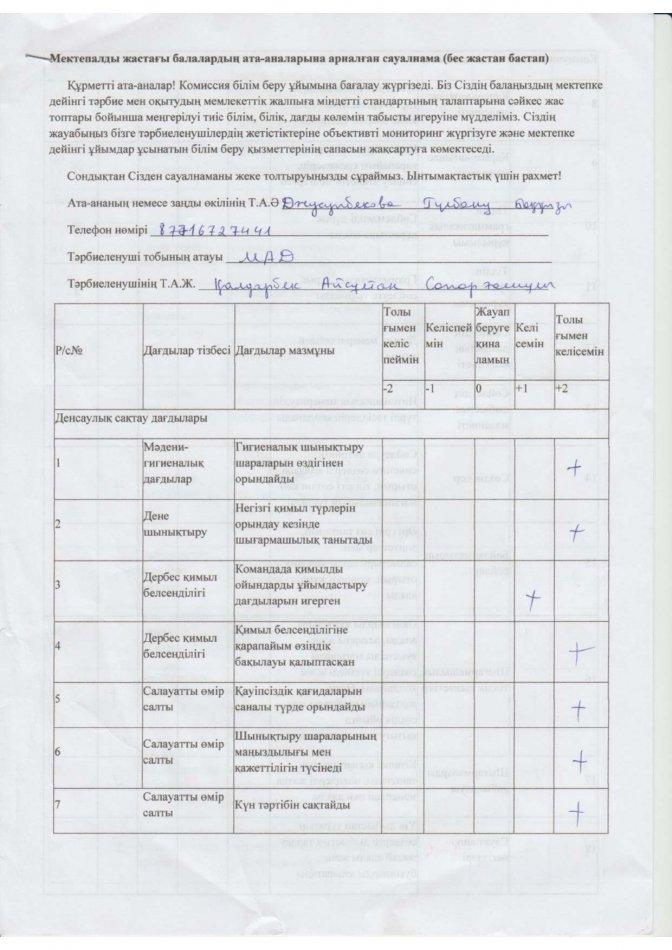 Мектепалды жастағы балалардың ата-аналарына арналған сауалнама (бес жастан бастап)
Құрметті ата-аналар! Комиссия білім беру ұйымына бағалау жүргізеді. Біз Сіздің балаңыздың мектепке
дейінгі тәрбие мен оқытудың мемлекеттік жалпыға міндетті стандартының талаптарына сәйкес жас
топтары бойынша меңгерілуі тиіс білім, білік, дағды көлемін табысты игеруіне мүдделіміз. Сіздің
жауабыңыз бізге тәрбиеленушілердің жетістіктеріне объективті мониторинг жүргізуге және мектепке
дейінгі ұйымдар ұсынатын білім беру қызметтерінің сапасын жақсартуға көмектеседі.
Сондықтан Сізден сауалнаманы жеке толтыруыңызды сұраймыз. Ынтымақтастық үшін рахмет!
Ата-ананың немесе заңды өкілінің Т.А.Ә Джусупбекова Гулбану
Телефон нөмірі 87716727441
Тәрбиеленуші тобының атауы МАД
Тәрбиеленушінің Т.А.Ж. Қалдарбек Айсултан
Р/с№ Дағдылар тізбесі Дағдылар мазмұны Толы ғымен келіс пеймін Келіспей мін Жауап беруге қина ламын Келі семін Толы ғымен келісемін
-2 -1 0 +1 +2
Денсаулық сақтау дағдылары
1 Мәдени-гигиеналық дағдылар Гигиеналық шынықтыру шараларын өздігінен орындайды +
2 Дене шынықтыру Негізгі қимыл түрлерін орындау кезінде шығармашылық танытады +
3 Дербес қимыл белсенділігі Командада қимылды ойындарды ұйымдастыру дағдыларын игерген +
4 Дербес қимыл белсенділігі Қимыл белсенділігіне қарапайым өзіндік бақылауы қалыптасқан +
5 Салауатты өмір салты Қауіпсіздік қағидаларын саналы түрде орындайды +
6 Салауатты өмір салты Шынықтыру шараларының маңыздылығы мен қажеттілігін түсінеді +
7 Салауатты өмір салты Күн тәртібін сақтайды +